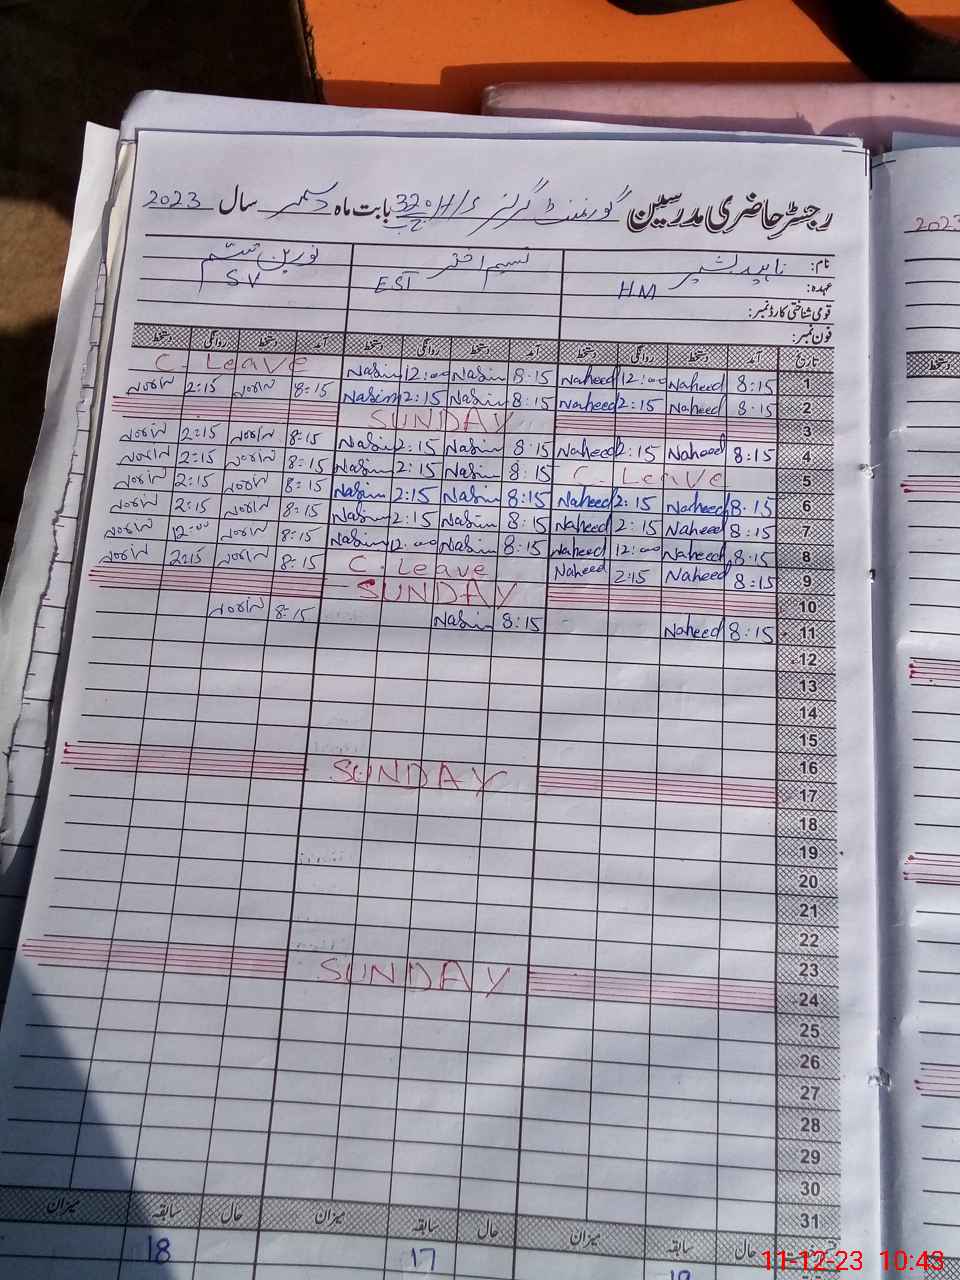 رجسٹر حاضری مدرسین گورنمنٹ گرلز H/S 320 بابت ماہ دسمبر سال 2023
نام: ناہید بشیر نسیم اختر نورین تبسم
عہدہ: HM EST SV
قومی شناختی کارڈ نمبر:
فون نمبر:
تاریخ آمد دستخط روانگی دستخط آمد دستخط روانگی دستخط آمد دستخط روانگی دستخط
1 8:15 Naheed 12:00 Naheed 8:15 Nasim 12:00 Nasim C. Leave
2 8:15 Naheed 2:15 Naheed 8:15 Nasim 2:15 Nasim 8:15 Norin 2:15 Norin
3 SUNDAY
4 8:15 Naheed 2:15 Naheed 8:15 Nasim 2:15 Nasim 8:15 Norin 2:15 Norin
5 C. Leave 8:15 Nasim 2:15 Nasim 8:15 Norin 2:15 Norin
6 8:15 Naheed 2:15 Naheed 8:15 Nasim 2:15 Nasim 8:15 Norin 2:15 Norin
7 8:15 Naheed 2:15 Naheed 8:15 Nasim 2:15 Nasim 8:15 Norin 2:15 Norin
8 8:15 Naheed 12:00 Naheed 8:15 Nasim 12:00 Nasim 8:15 Norin 12:00 Norin
9 8:15 Naheed 2:15 Naheed C. Leave 8:15 Norin 2:15 Norin
10 SUNDAY
11 8:15 Naheed 8:15 Nasim 8:15 Norin
12
13
14
15
16
17 SUNDAY
18
19
20
21
22
23
24 SUNDAY
25
26
27
28
29
30
31
حال سابقہ میزان حال سابقہ میزان حال سابقہ میزان
17 18
2023
دستخط
11-12-23 10:43